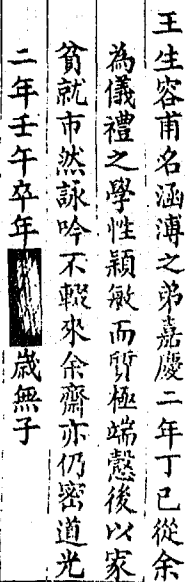 王生容甫名涵溥之弟嘉慶二年丁巳從余
為儀禮之學性穎敏而質極端愨後以家
貧就市然詠吟不輟來余齋亦仍密道光
二年壬午卒年歲無子